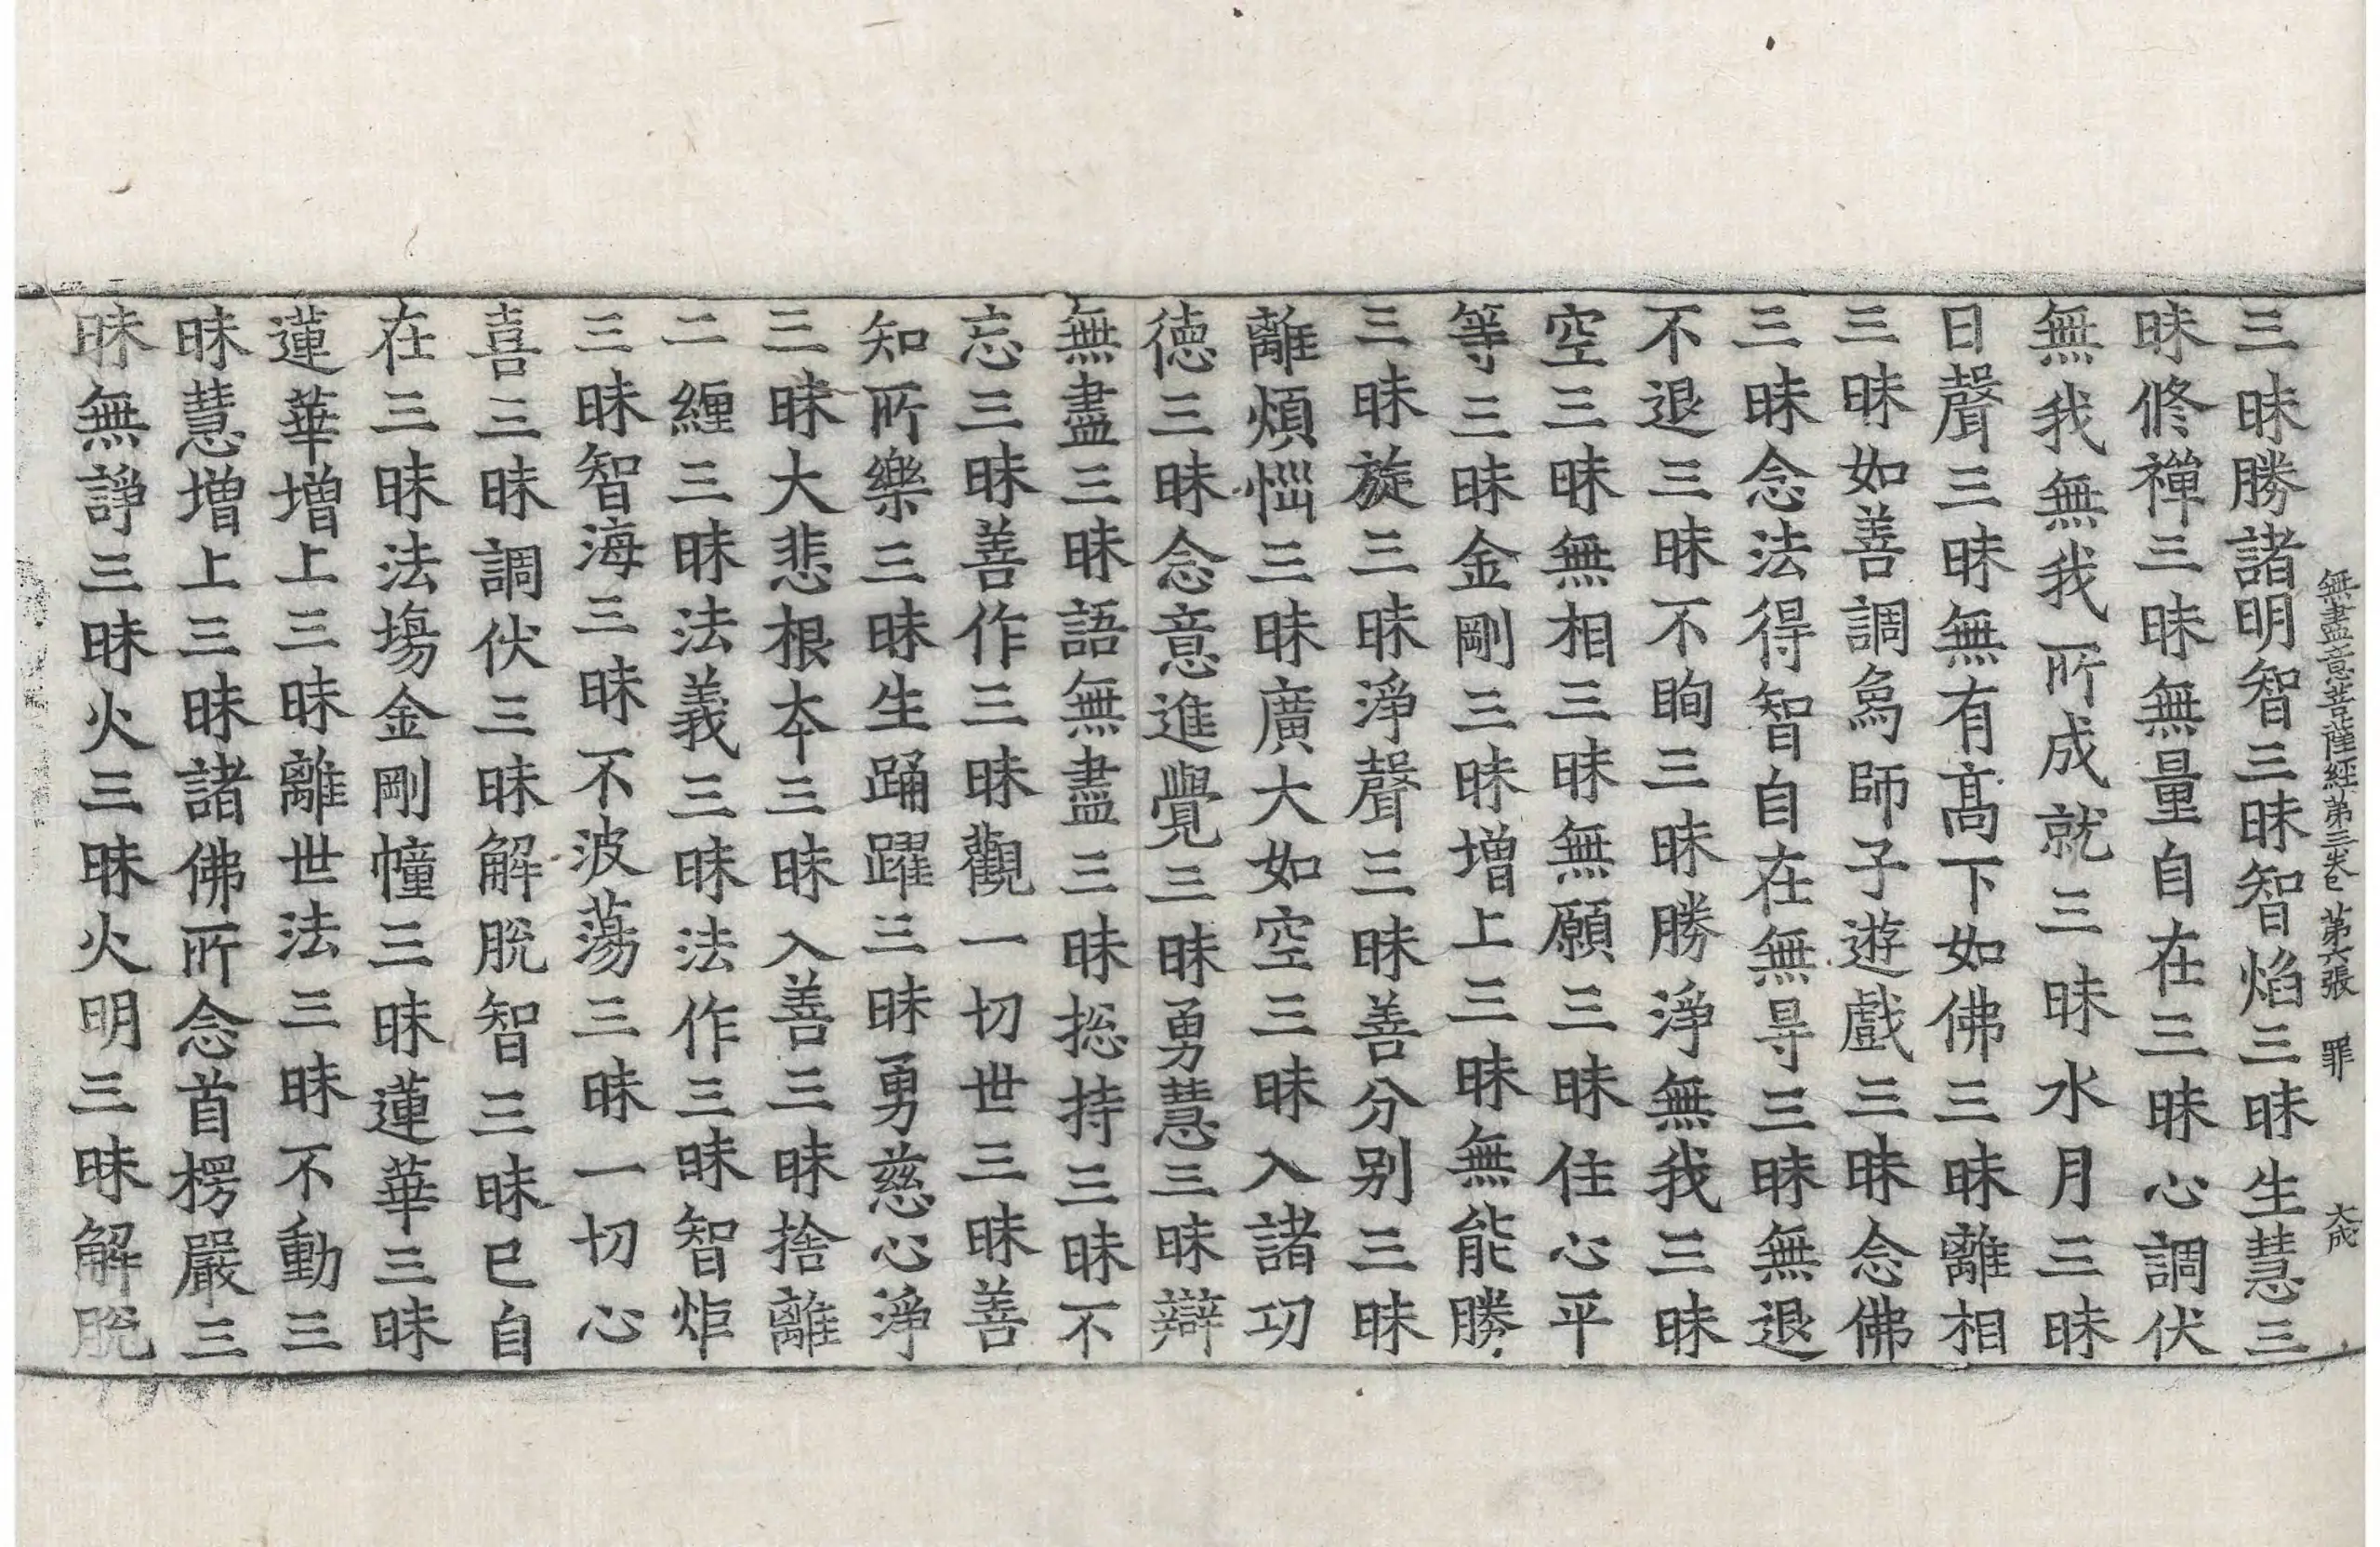 無盡意菩薩經第三卷 第六張 罪 大成
三昧勝諸明智三昧智焰三昧生慧三
昧修禪三昧無量自在三昧心調伏
無我無我所成就三昧水月三昧
日聲三昧無有髙下如佛三昧離相
三昧如善調爲師子遊戲三昧念佛
三昧念法得智自在無㝵三昧無退
不退三昧不眴三昧勝淨無我三昧
空三昧無相三昧無願三昧住心平
等三昧金剛三昧增上三昧無能勝
三昧旋三昧淨聲三昧善分別三昧
離煩惱三昧廣大如空三昧入諸功
德三昧念意進覺三昧勇慧三昧辯
無盡三昧語無盡三昧捴持三昧不
忘三昧善作三昧觀一切世三昧善
知所樂三昧生踊躍三昧勇慈心淨
三昧大悲根夲三昧入善三昧捨離
二纒三昧法義三昧法作三昧智炬
三昧智海三昧不波蕩三昧一切心
喜三昧調伏三昧解脫智三昧巳自
在三昧法塲金剛幢三昧蓮華三昧
蓮華增上三昧離世法三昧不動三
昧慧增上三昧諸佛所念首楞嚴三
昧無諍三昧火三昧火明三昧解脫